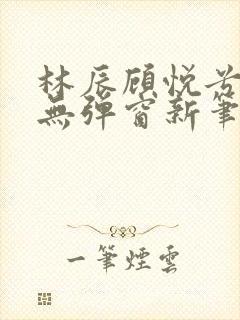 林辰顾悦兮
無彈窗新筆
一筆煙雲